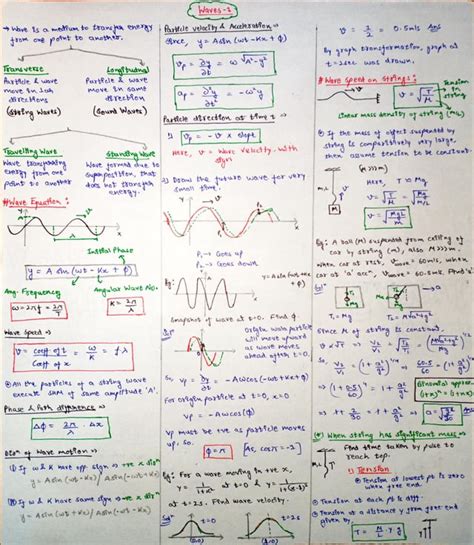 Waves-1
→ Wave is a medium to transfer energy
from one point to another.
Transverse
Particle & wave
move in ⊥er
directions
(String Waves)
Longitudinal
Particle & wave
move in same
direction
(Sound Waves)
Travelling Wave
Wave transporting
energy from one
point to another
Standing Wave
Wave formed due to
superposition, that
does not transfer
energy.
# Wave Equation:
Initial Phase
y = A sin (ωt - Kx + ϕ)
Ang. Frequency
ω = 2πf = 2π/T
Angular Wave No.
K = 2π/λ
Wave Speed →
v = coeff of t / coeff of x = ω/K = fλ
⊛ All the particles of a string wave
execute SHM of same amplitude 'A'.
Phase & Path difference →
Δϕ = 2π/λ · Δx
of Wave motion →
(i) If ω & K have opp sign → +ve x
y = A sin(ωt-Kx)/A sin(-ωt+Kx)
(ii) If ω & K have same sign → -ve x
Particle velocity & Acceleration →
Since, y = A sin (ωt - Kx + ϕ)
Vp = ∂y/∂t = ω√A²-y²
ap = ∂²y/∂t² = -ω²y
Particle direction at time t →
Vp = -v × slope
Here, v = Wave velocity with
sign
Draw the future wave for very
small time.
P₁ → Goes up
P₂ → Goes down
Eg:
y = A sin(ωt-Kx+ϕ)
Snapshot of wave at t=0. Find ϕ.
Origin particle
will move upward
as wave moves
ahead after t=0.
So, Vp = ∂y/∂t = -Aω cos(-ωt+Kx+ϕ)
For origin particle at t=0,
Vp = -Aω cos(ϕ)
Vp must be +ve as particle moves
up. So,
ϕ = π
[As, cos π = -1]
Eg: For a wave moving in +ve x,
y = 1/1+x² at t=0 and
at t=2s. Find wave velocity.
t=0
t=2s
v = 1/2 = 0.5 m/s Ans
By graph transformation, graph at
t=2sec was drawn.
# Wave Speed on Strings:
Tension
in
string
v = √T/μ
Linear mass density of string (m/L)
⊛ If the mass of object suspended by
string is comparitively very large,
then assume tension to be constant.
(M>>>m)
Here, T = Mg
m/L
Eg: A ball (M) suspended from ceiling of
car by string (m), also M>>>m.
when car at rest, Vwave = 60 m/s, when
car at 'a' acc, Vwave = 60.5 m/s. Find 'a'
T₁ = Mg
T₂ = M√g²+a²
Since μ of string is constant.
Binomial approx
(*) When string has significant mass →
Find time taken by pulse to
reach top.
1) Tension
⊛ Tension at lowest pt is zero
when free end.
⊛ Tension at each pt is diff.
⊛ Tension at a distance y from free end
given by
T = M/L y g